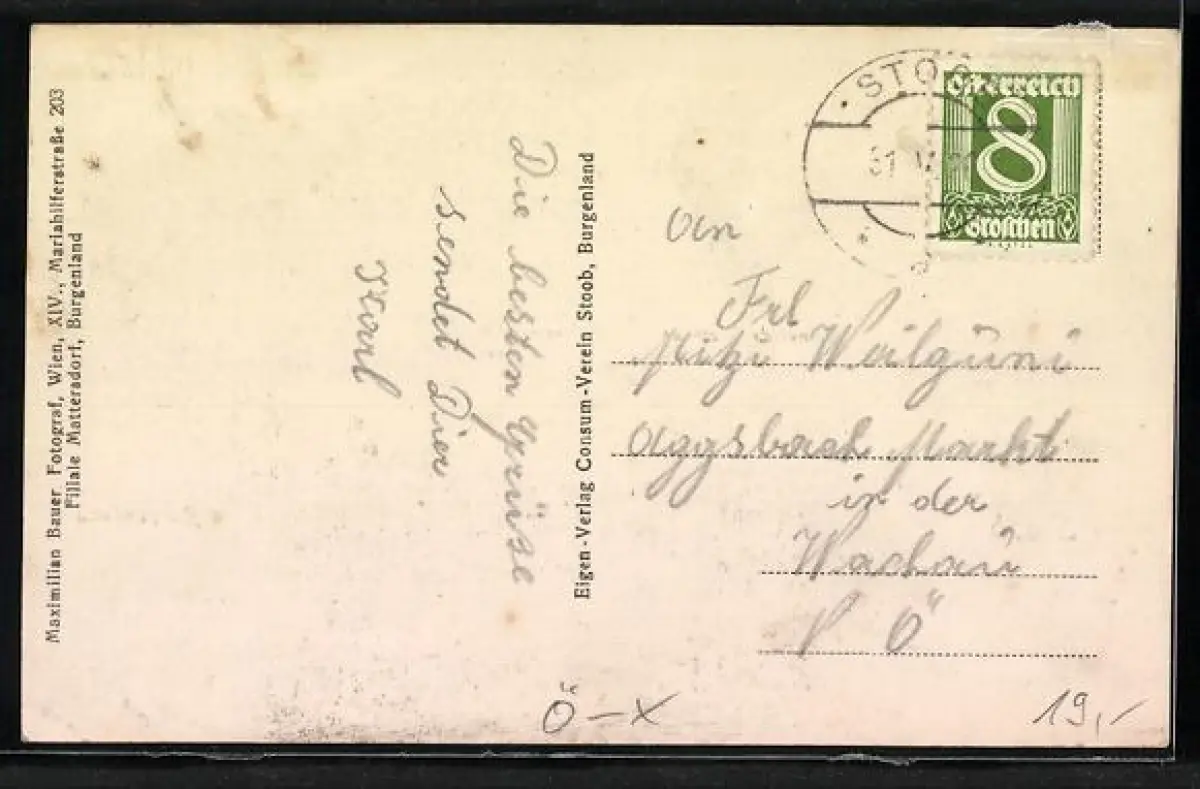 Maximilian Bauer Fotograf, Wien, XIV., Mariahilferstraße 203
Filiale Matteradorf, Burgenland
Die besten Grüsse
sendet Dier
Karl
Eigen-Verlag Consum-Verein Stoob, Burgenland
STOOB
Österreich
8
Groschen
An
Frl
Mitzi Wailguni
Aggsbach Markt
in der
Wachau
N Ö
Ö-X
19,-